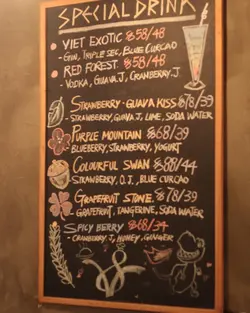 SPECIAL DRINK
VIET EXOTIC 58/48
- GIN, TRIPLE SEC, BLUE CURCAO
RED FOREST 58/48
- VODKA, GUAVA J, CRANBERRY J.
STRAWBERRY-GUAVA KISS 78/39
- STRAWBERRY, GUAVA J, LIME, SODA WATER
PURPLE MOUNTAIN 68/39
BLUEBERRY, STRAWBERRY, YOGURT
COLOURFUL SWAN 88/44
- STRAWBERRY, O.J., BLUE CURCAO
GRAPEFRUIT STONE. 78/39
- GRAPEFRUIT, TANGERINE, SODA WATER
SPICY BERRY 68/34
- CRANBERRY J, HONEY, GINGER